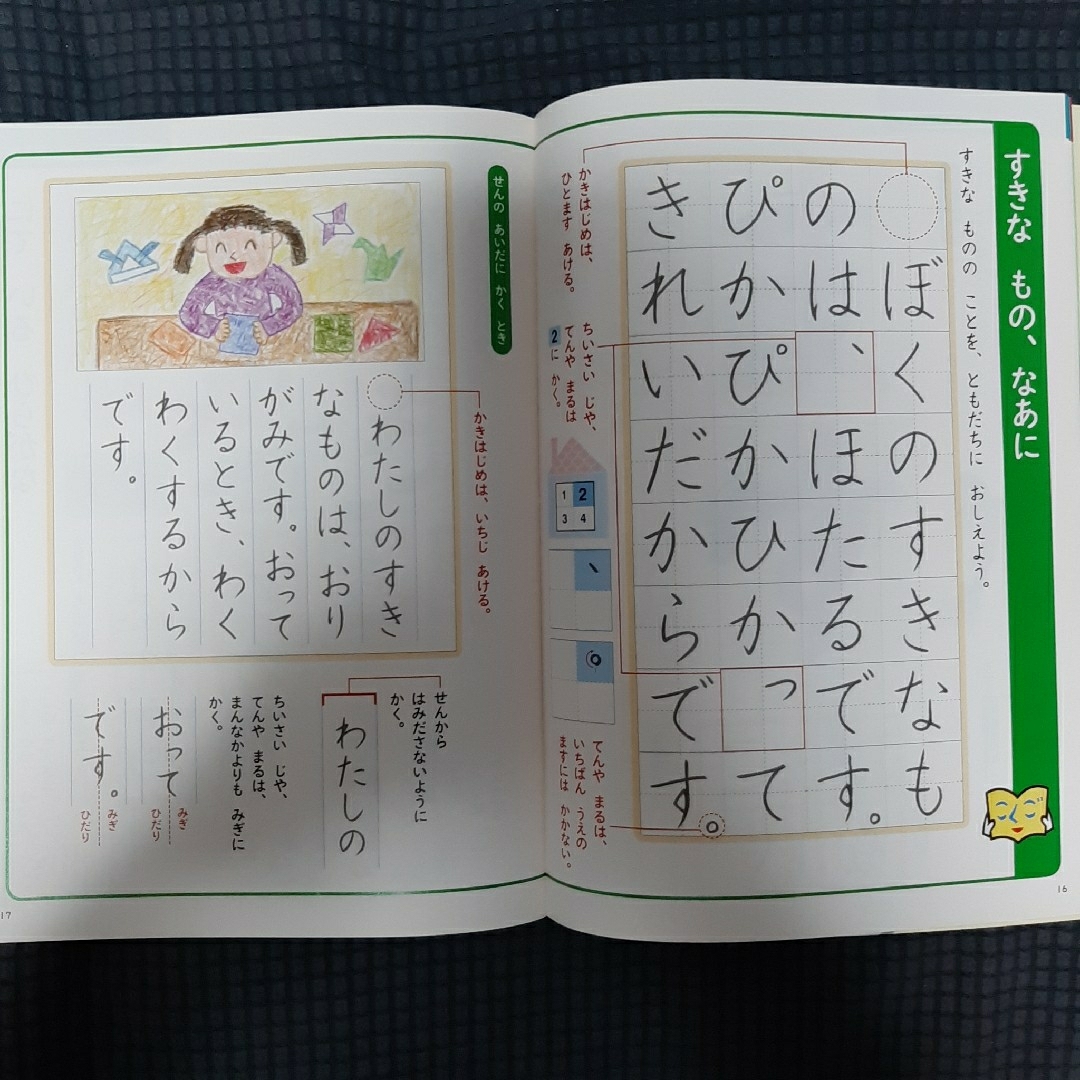 すきな もの、なあに
すきな ものの ことを、ともだちに おしえよう。
ぼくのすきなも
のは、ほたるです。
ぴかぴかひかって
きれいだからです。
かきはじめは、
ひとます あける。
ちいさい じや、
てんや まるは
2に かく。
1 2
3 4
、
。
てんや まるは、
いちばん うえの
ますには かかない。
16
せんの あいだに かく とき
かきはじめは、いちじ あける。
わたしのすき
なものは、おり
がみです。おって
いるとき、わく
わくするから
です。
せんから
はみださないように
かく。
わたしの
ちいさい じや、
てんや まるは、
まんなかよりも みぎに
かく。
おって
みぎ
ひだり
です。
みぎ
ひだり
17